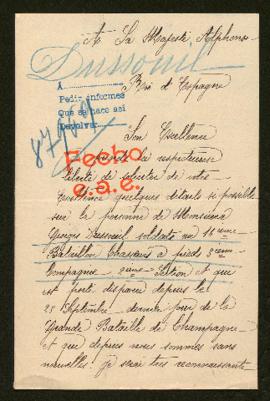 A Sa Majesté Alphonse
Dussouil
Roi d'Espagne
A
Pedir informes
Que se hace así
Devolver
Son Excellence
Fecho
e.a.e.
la respectueuse
liberté de solliciter de votre
Excellence quelques détails si possible
sur la personne de Monsieur
Georges Dussouil soldat au 11ème
Bataillon Chasseurs à pieds 3ème
Compagnie section et qui
est porté disparu depuis le
25 Septembre dernier jour de la
Grande Bataille de Champagne
et que depuis nous sommes sans
nouvelles. je serai très reconnaissante